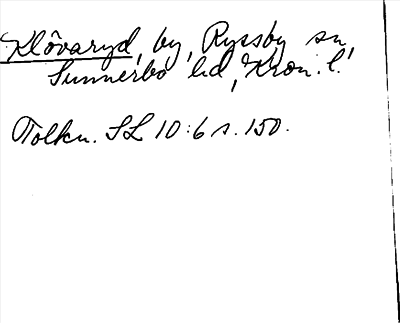 Klôvaryd, by, Ryssby sn,
Sunnerbo hd, Kron. l.
Tolkn. SL 10:6 s. 150.